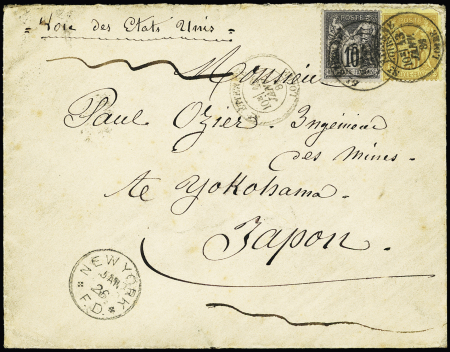 = Voie des Etats Unis =
POSTE
10
Monsieur
Paul Ozier Ingénieur
des Mines
te Yokohama
Japon
NEW YORK
JAN
26
F.D.